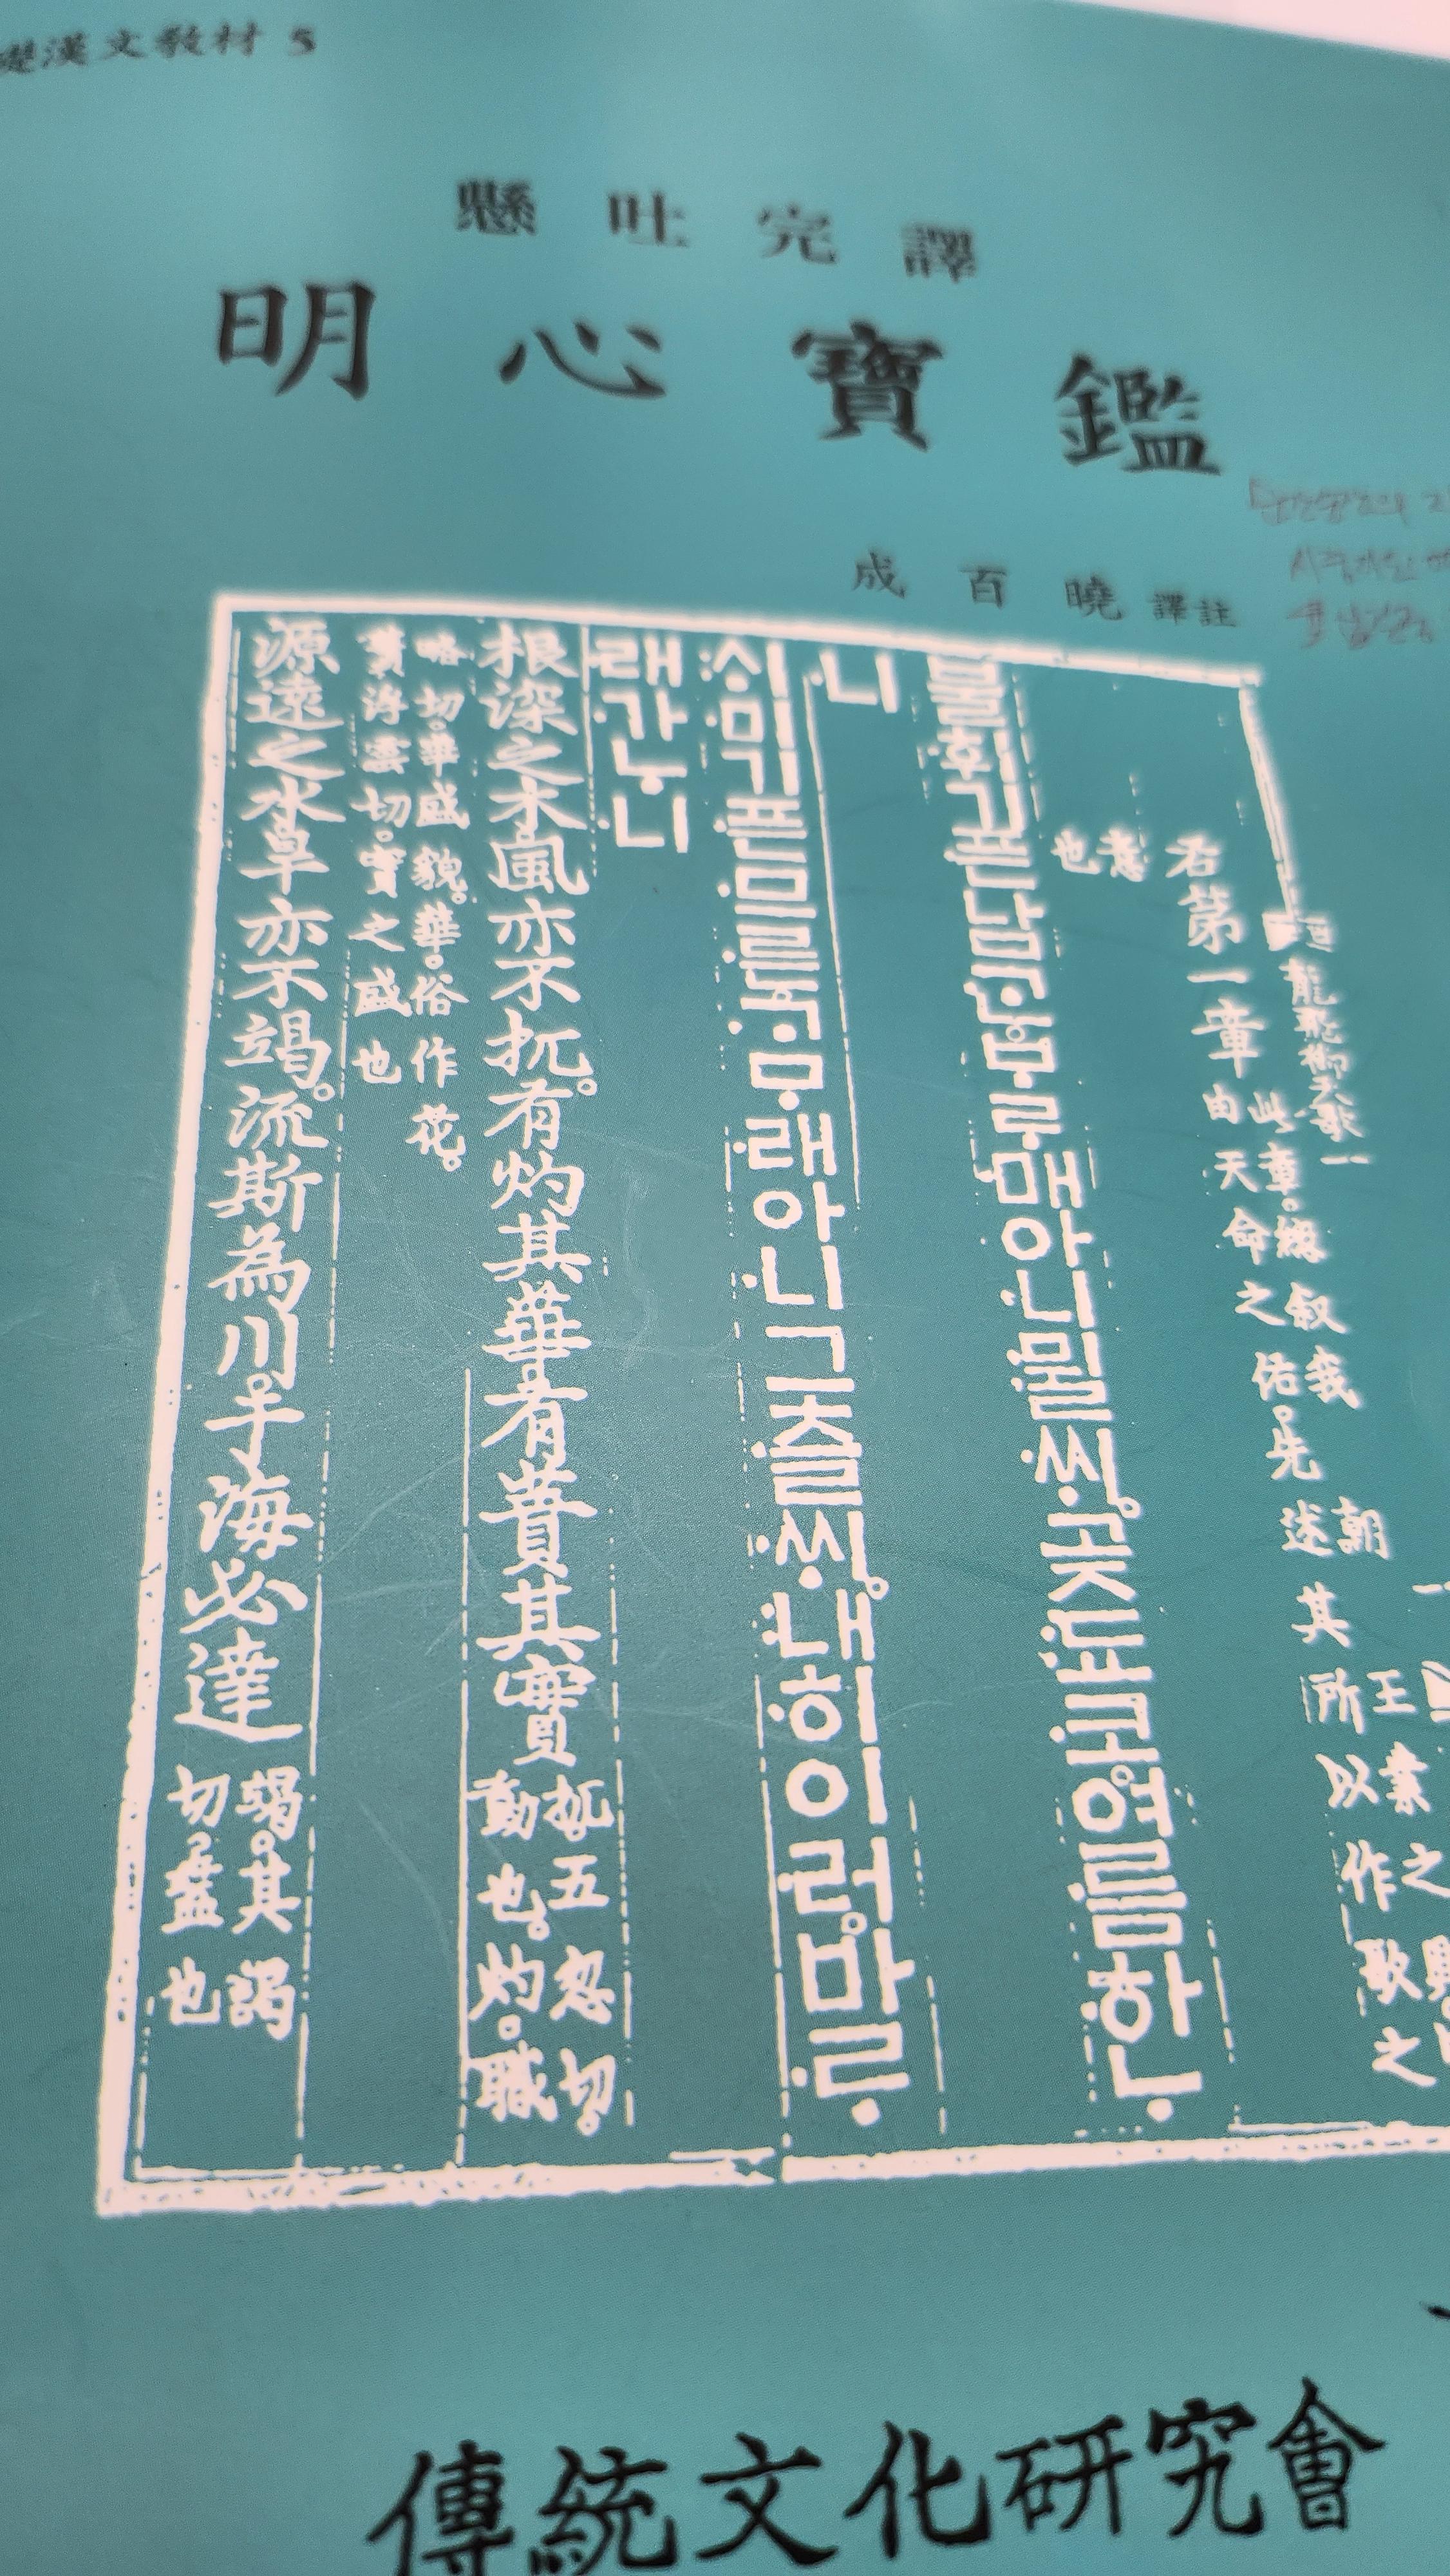 礎漢文敎材 5
懸吐完譯
明心寶鑑
成百曉 譯註
龍飛御天歌一
此章。緫叙我 朝 王業之
右第一章 由天命之佑。先述其所以作歌之
意
也
불휘기픈남ᄀᆞᆫᄇᆞᄅᆞ매아니뮐ᄊᆡ。곶됴코。여름하ᄂᆞ
니
ᄉᆡ미기픈므른ᄀᆞᄆᆞ래아니그츨ᄊᆡ。내히이러。바ᄅᆞ
래가ᄂᆞ니
根深之木風亦不扤。有灼其華有蕡其實 扤五忽切。動也。灼。職
略切。華盛貌。華。俗作花。
蕡浮雲切。實之盛也
源遠之水旱亦不竭。流斯為川。于海必達 竭。其謁切。盡也
傳統文化硏究會